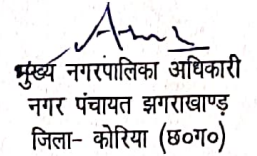 मुख्य नगरपालिका अधिकारी
नगर पंचायत झगराखाण्ड़
जिला- कोरिया (छ०ग०)